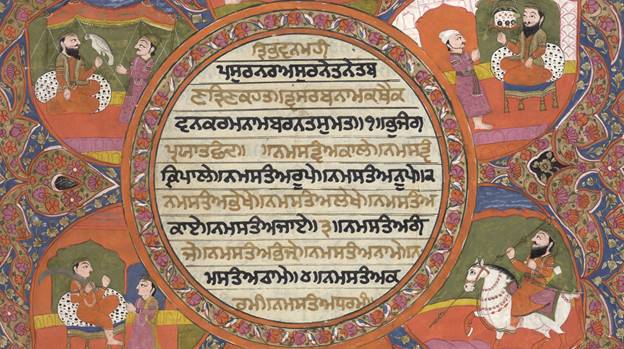 ਤ੍ਰਿਭਵਨਮਹੀ
ਪਸੁਰਨਰਅਸੁਰਨੇਤਨੇਤਬ
ਣਤ੍ਰਿਣਕਹਤ॥ਤ੍ਵਸਰਬਨਾਮਕਥੈਕ
ਵਨਕਰਮਨਾਮਬਰਨਤਸੁਮਤ॥੧॥ਭੁਜੰਗ
ਪ੍ਰਯਾਤਛੰਦ॥ ॥ਨਮਸਤ੍ਵੰਅਕਾਲੇ॥ਨਮਸਤ੍ਵੰ
ਕ੍ਰਿਪਾਲੇ॥ਨਮਸਤੰਅਰੂਪੇ॥ਨਮਸਤੰਅਨੂਪੇ॥
ਨਮਸਤੰਅਭੇਖੇ॥ਨਮਸਤੰਅਲੇਖੇ॥ਨਮਸਤੰਅ
ਕਾਏ॥ਨਮਸਤੰਅਜਾਏ॥੩॥ਨਮਸਤੰਅਗੰ
ਜੇ॥ਨਮਸਤੰਅਭੰਜੇ॥ਨਮਸਤੰਅਨਾਮੇ॥ਨ
ਮਸਤੰਅਠਾਮੇ॥੪॥ਨਮਸਤੰਅਕ
ਰਮੰ॥ਨਮਸਤੰਅਧਰਮੰ॥